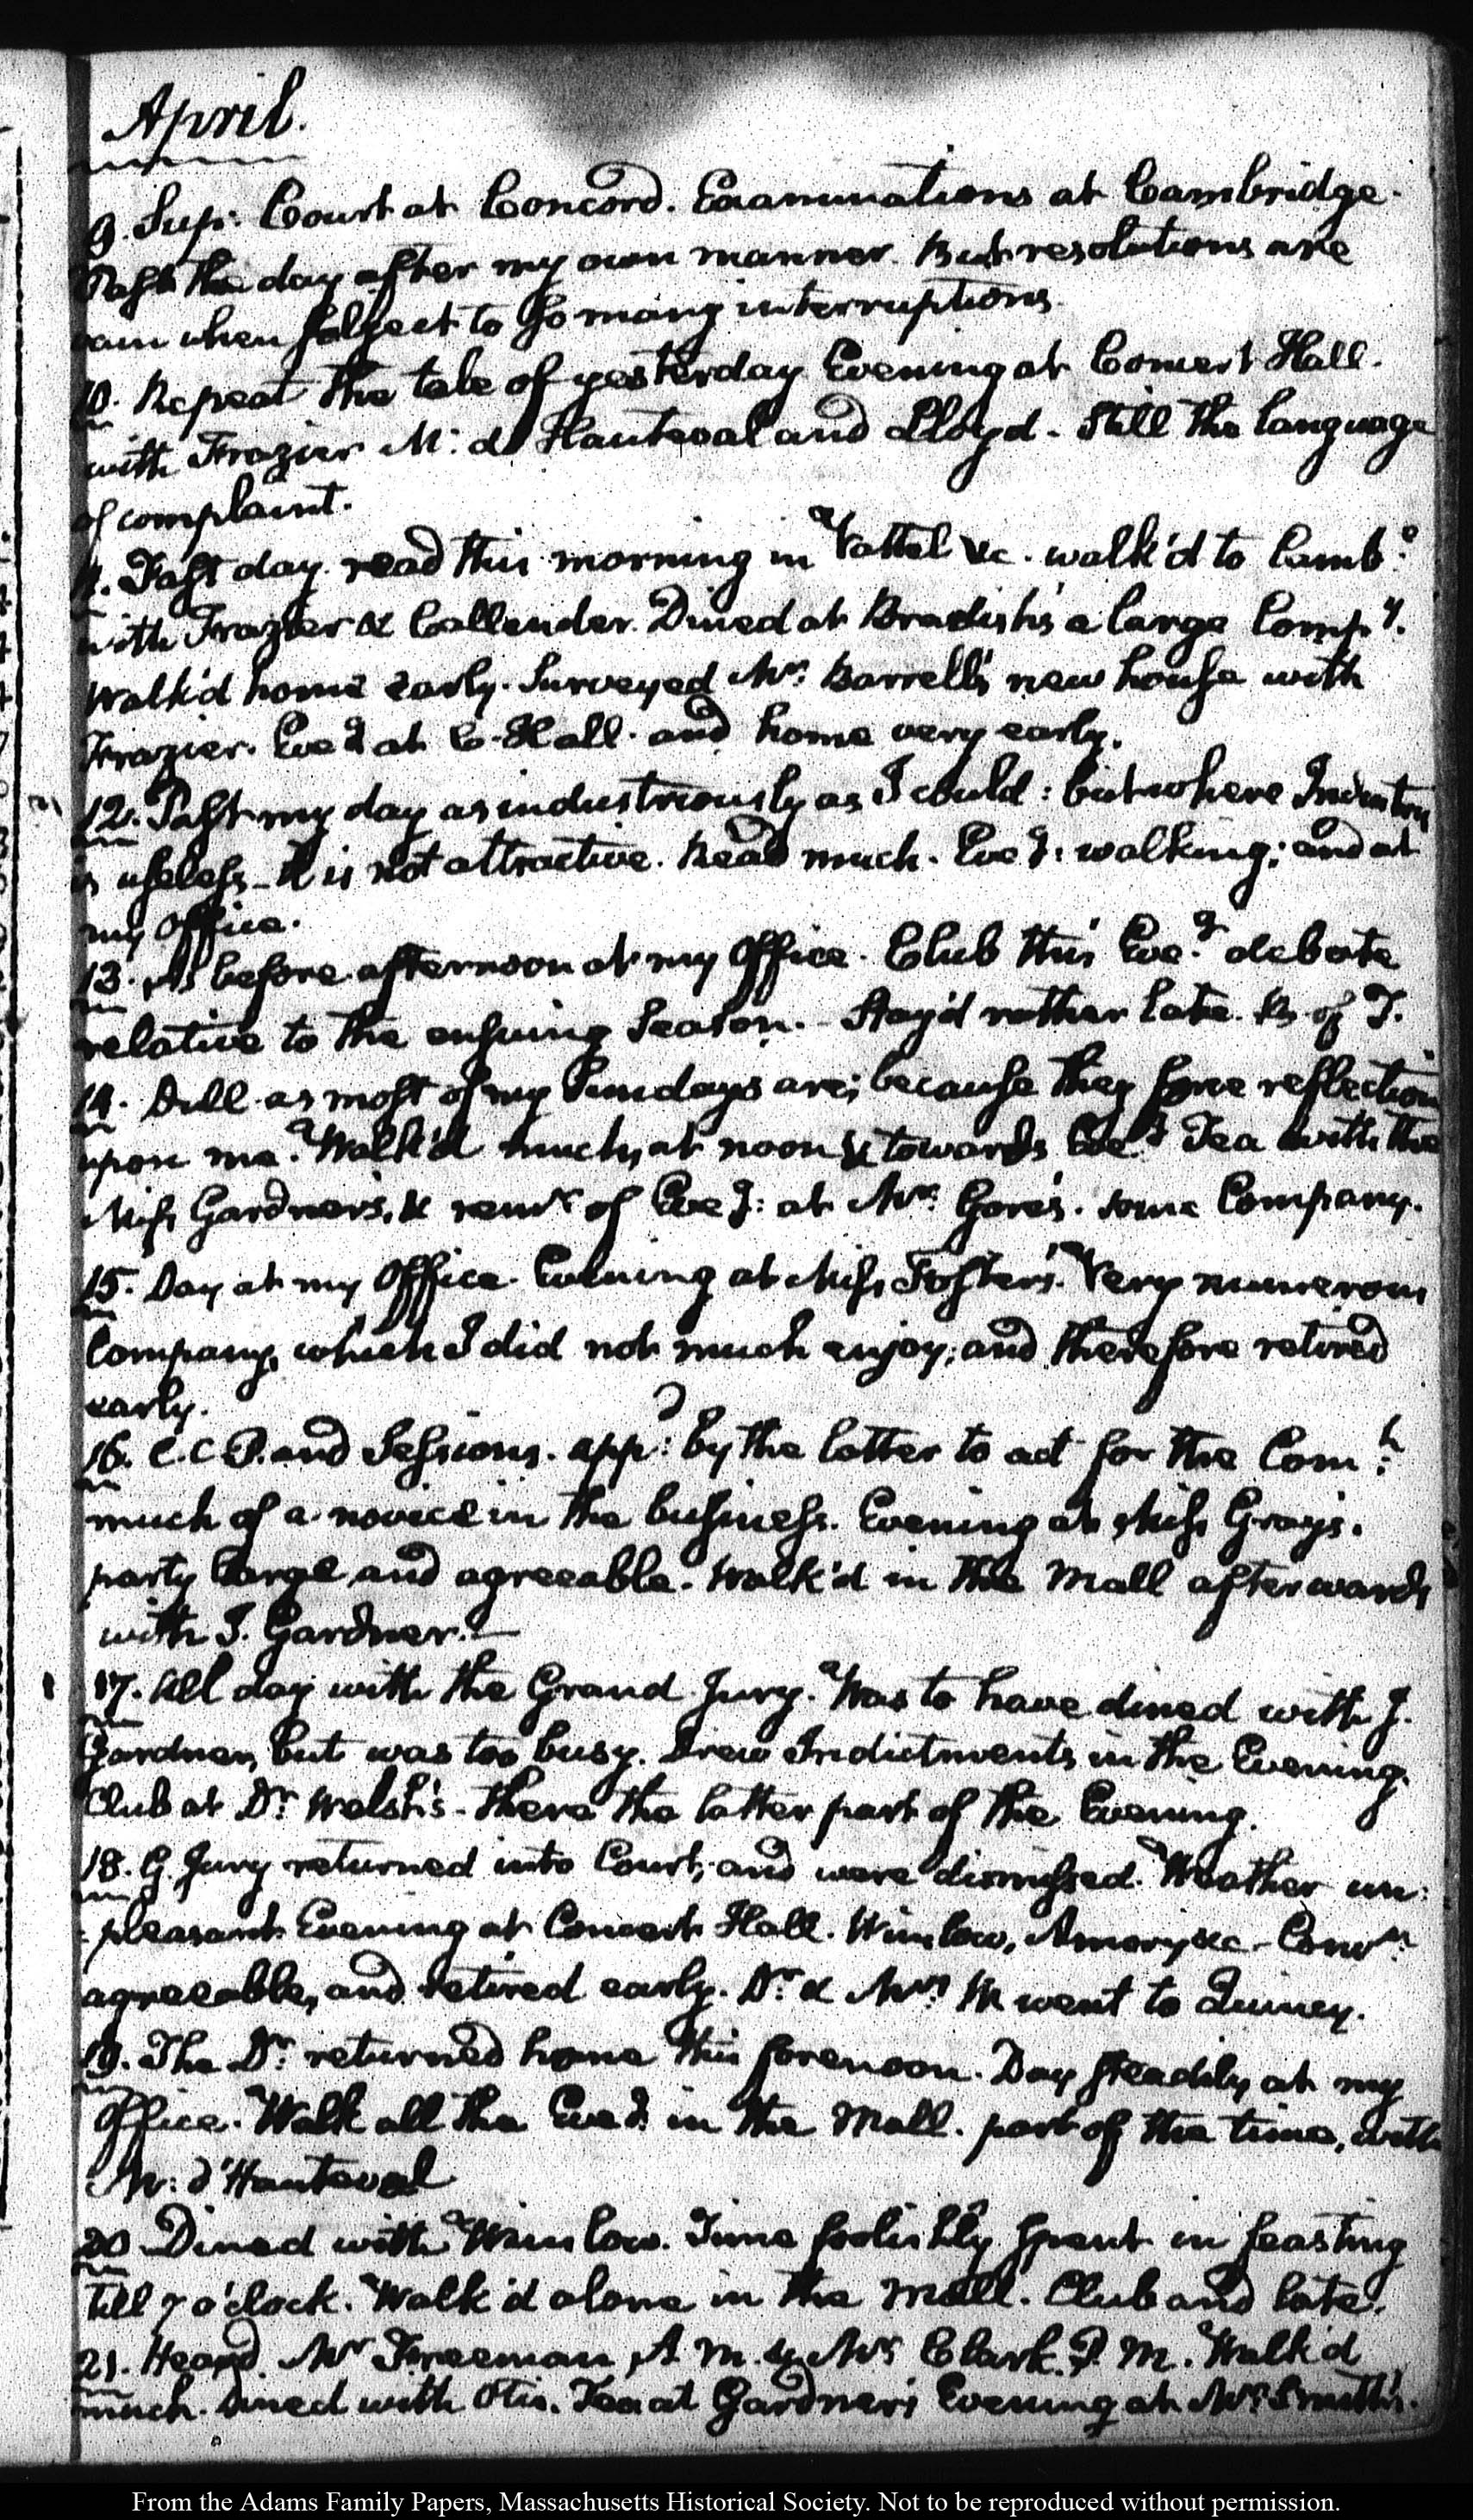 April.
9. Sup: Court at Concord. Examinations at Cambridge.
Past the day after my own manner. But resolutions are
vain when subject to so many interruptions.
10. Repeat the tale of yesterday Evening at Concert Hall.
with Frazier M: d'Hauteval and Lloyd. Still the language
of complaint.
11. Fast day. read this morning in Vattel &c. walk'd to Camb:e
with Frazier & Callender. Dined at Bradish's a large Comp.y.
Walk'd home early. Surveyed Mr: Barrell's new house with
Frazier. Eveg at C. Hall. and home very early.
12. Past my day as industriously as I could: but where Industry
is useless it is not attractive. Read much. Eveg: walking; and at
my Office.
13. As before afternoon at my Office. Club this Eve:g debate
relative to the ensuing Season. Stay'd rather late. of T.
14. Dull as most of my Sundays are; because they force reflection
upon me. Walk'd much, at noon & towards Eveg Tea with the
Miss Gardner's, & remr of Eveg: at Mr: Gore's. some Company.
15. Day at my Office. Evening at Miss Foster's. Very numerous
Company, which I did not much enjoy; and therefore retired
early.
16. C. C P. and Sessions. app:d by the latter to act for the Com:h
much of a novice in the business. Evening at Miss Gray's.
party large and agreeable. Walk'd in the Mall afterwards
with J. Gardner.—
17. All day with the Grand Jury. Was to have dined with J.
Gardner, but was too busy. Drew Indictments in the Evening.
Club at Dr: Welsh's - there the latter part of the Evening.
18. G. Jury returned into Court, and were dismissed. Weather un:
:pleasant. Evening at Concert Hall. Winslow, Amory &c - Convn:
agreeable, and retired early. Dr: & Mrs: W went to Quincy.
19. The Dr: returned home this forenoon. Day steadily at my
Office. Walk all the Eveg. in the Mall. part of the time, with
M: d'Hauteval
20 Dined with Winslow. Time foolishly spent in feasting
till 7 o'clock. Walk'd alone in the Mall. Club and late.
21. Heard Mr Freeman A. M. & Mr Clark. P. M. Walk'd
much. Dined with Otis. Tea at Gardner's Evening at Mr: Smith's.
From the Adams Family Papers, Massachusetts Historical Society. Not to be reproduced without permission.